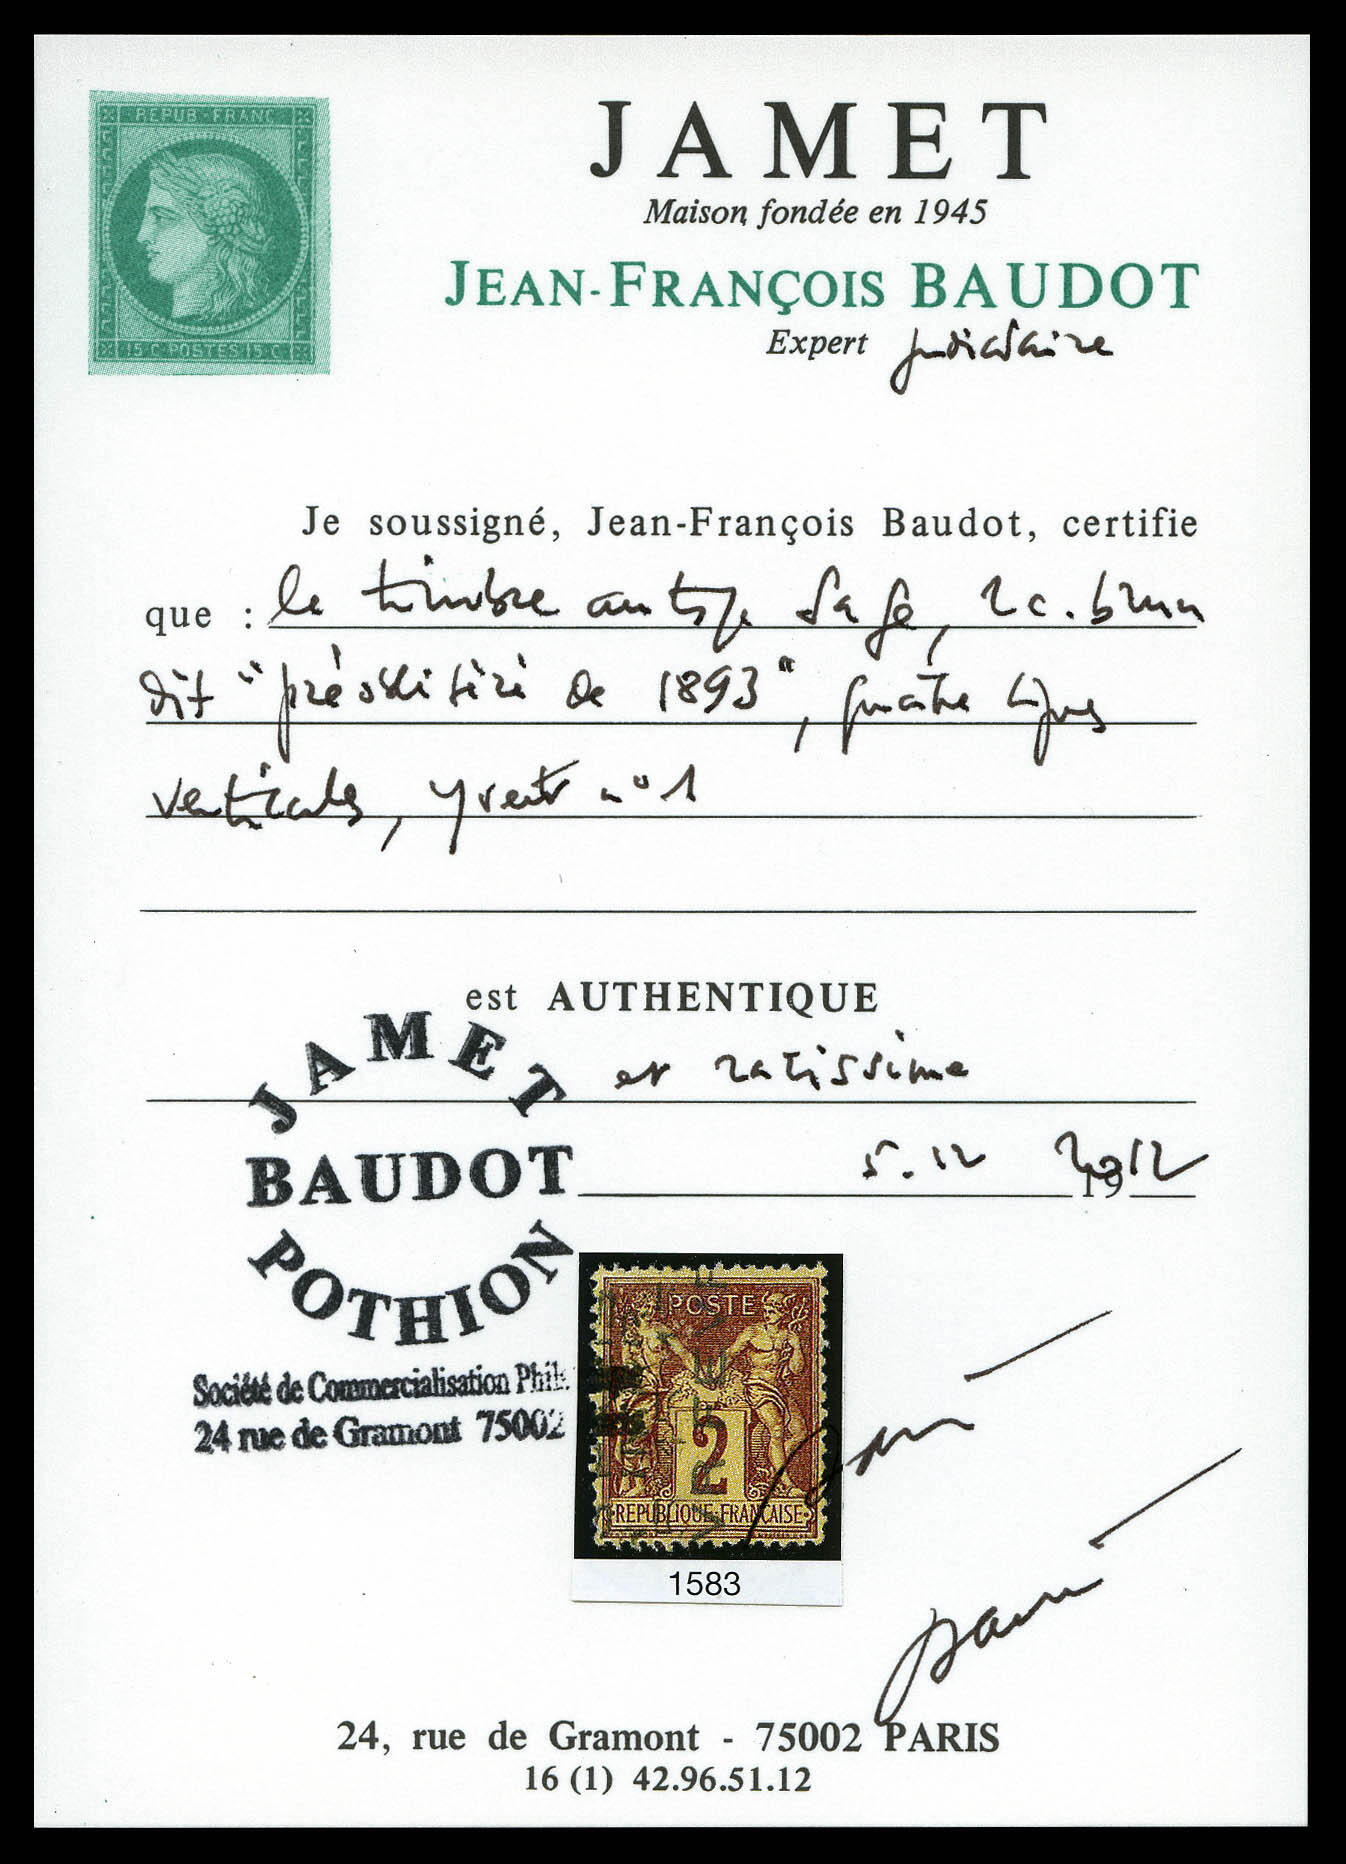 REPUB·FRANC
15 C·POSTES 15 C
JAMET
Maison fondée en 1945
JEAN-FRANÇOIS BAUDOT
Expert judiciaire
Je soussigné, Jean-François Baudot, certifie
que : le timbre au type Sage, 2c. brun
dit "préoblitéré de 1893", quatre lignes
verticales, Yvert n° 1
est AUTHENTIQUE
et rarissime
5.12 2012
19
JAMET
BAUDOT
POTHION
Société de Commercialisation
24 rue de Gramont 75002
POSTE
2
REPUBLIQUE FRANÇAISE
1583
24, rue de Gramont - 75002 PARIS
16 (1) 42.96.51.12